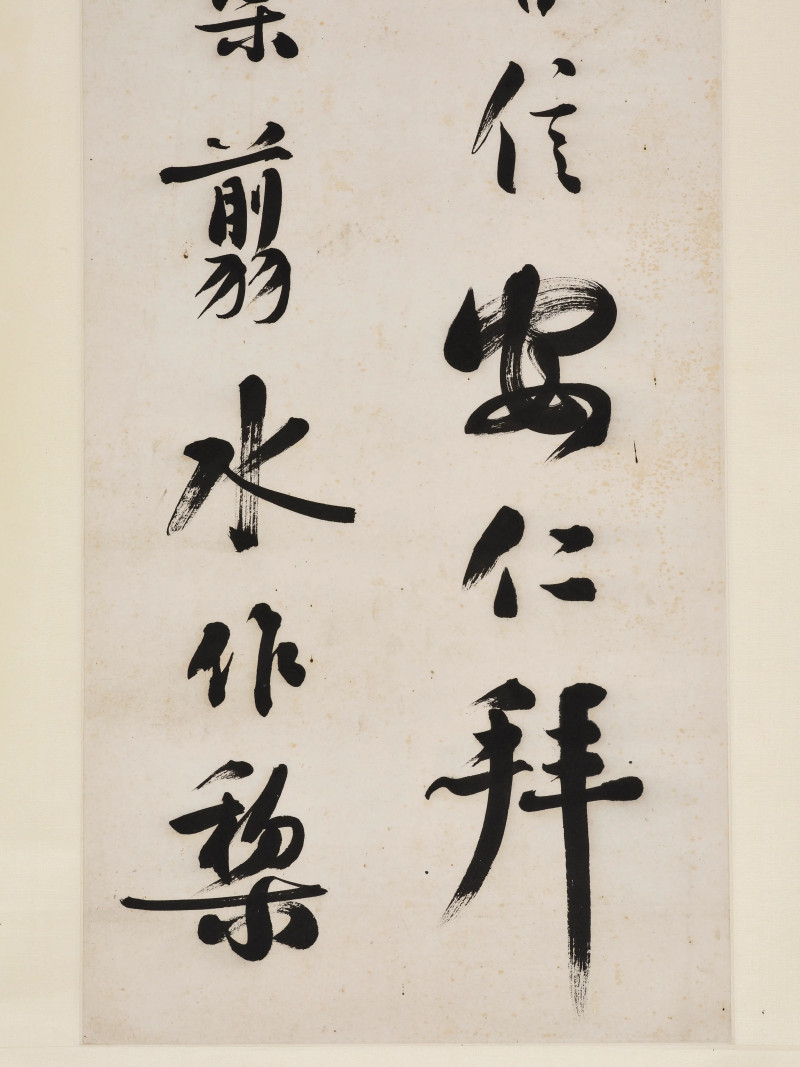 信安仁拜
翦水作棃